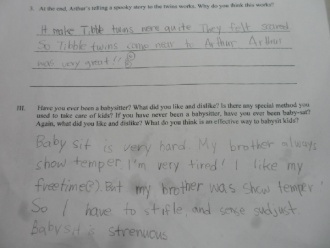 3. At the end, Arthur's telling a spooky story to the twins works. Why do you think this works?
It make Tibble twins were quite. They felt scared
So Tibble twins came near to Arthur. Arthur
was very great!!
III. Have you ever been a babysitter? What did you like and dislike? Is there any special method you
used to take care of kids? If you have never been a babysitter, have you ever been baby-sat?
Again, what did you like and dislike? What do you think is an effective way to babysit kids?
Baby sit is very hard. My brother always
show temper. I'm very tired! I like my
freetime(?). But my brother was show temper
So I have to stifle, and sense
Babysit is strenuous